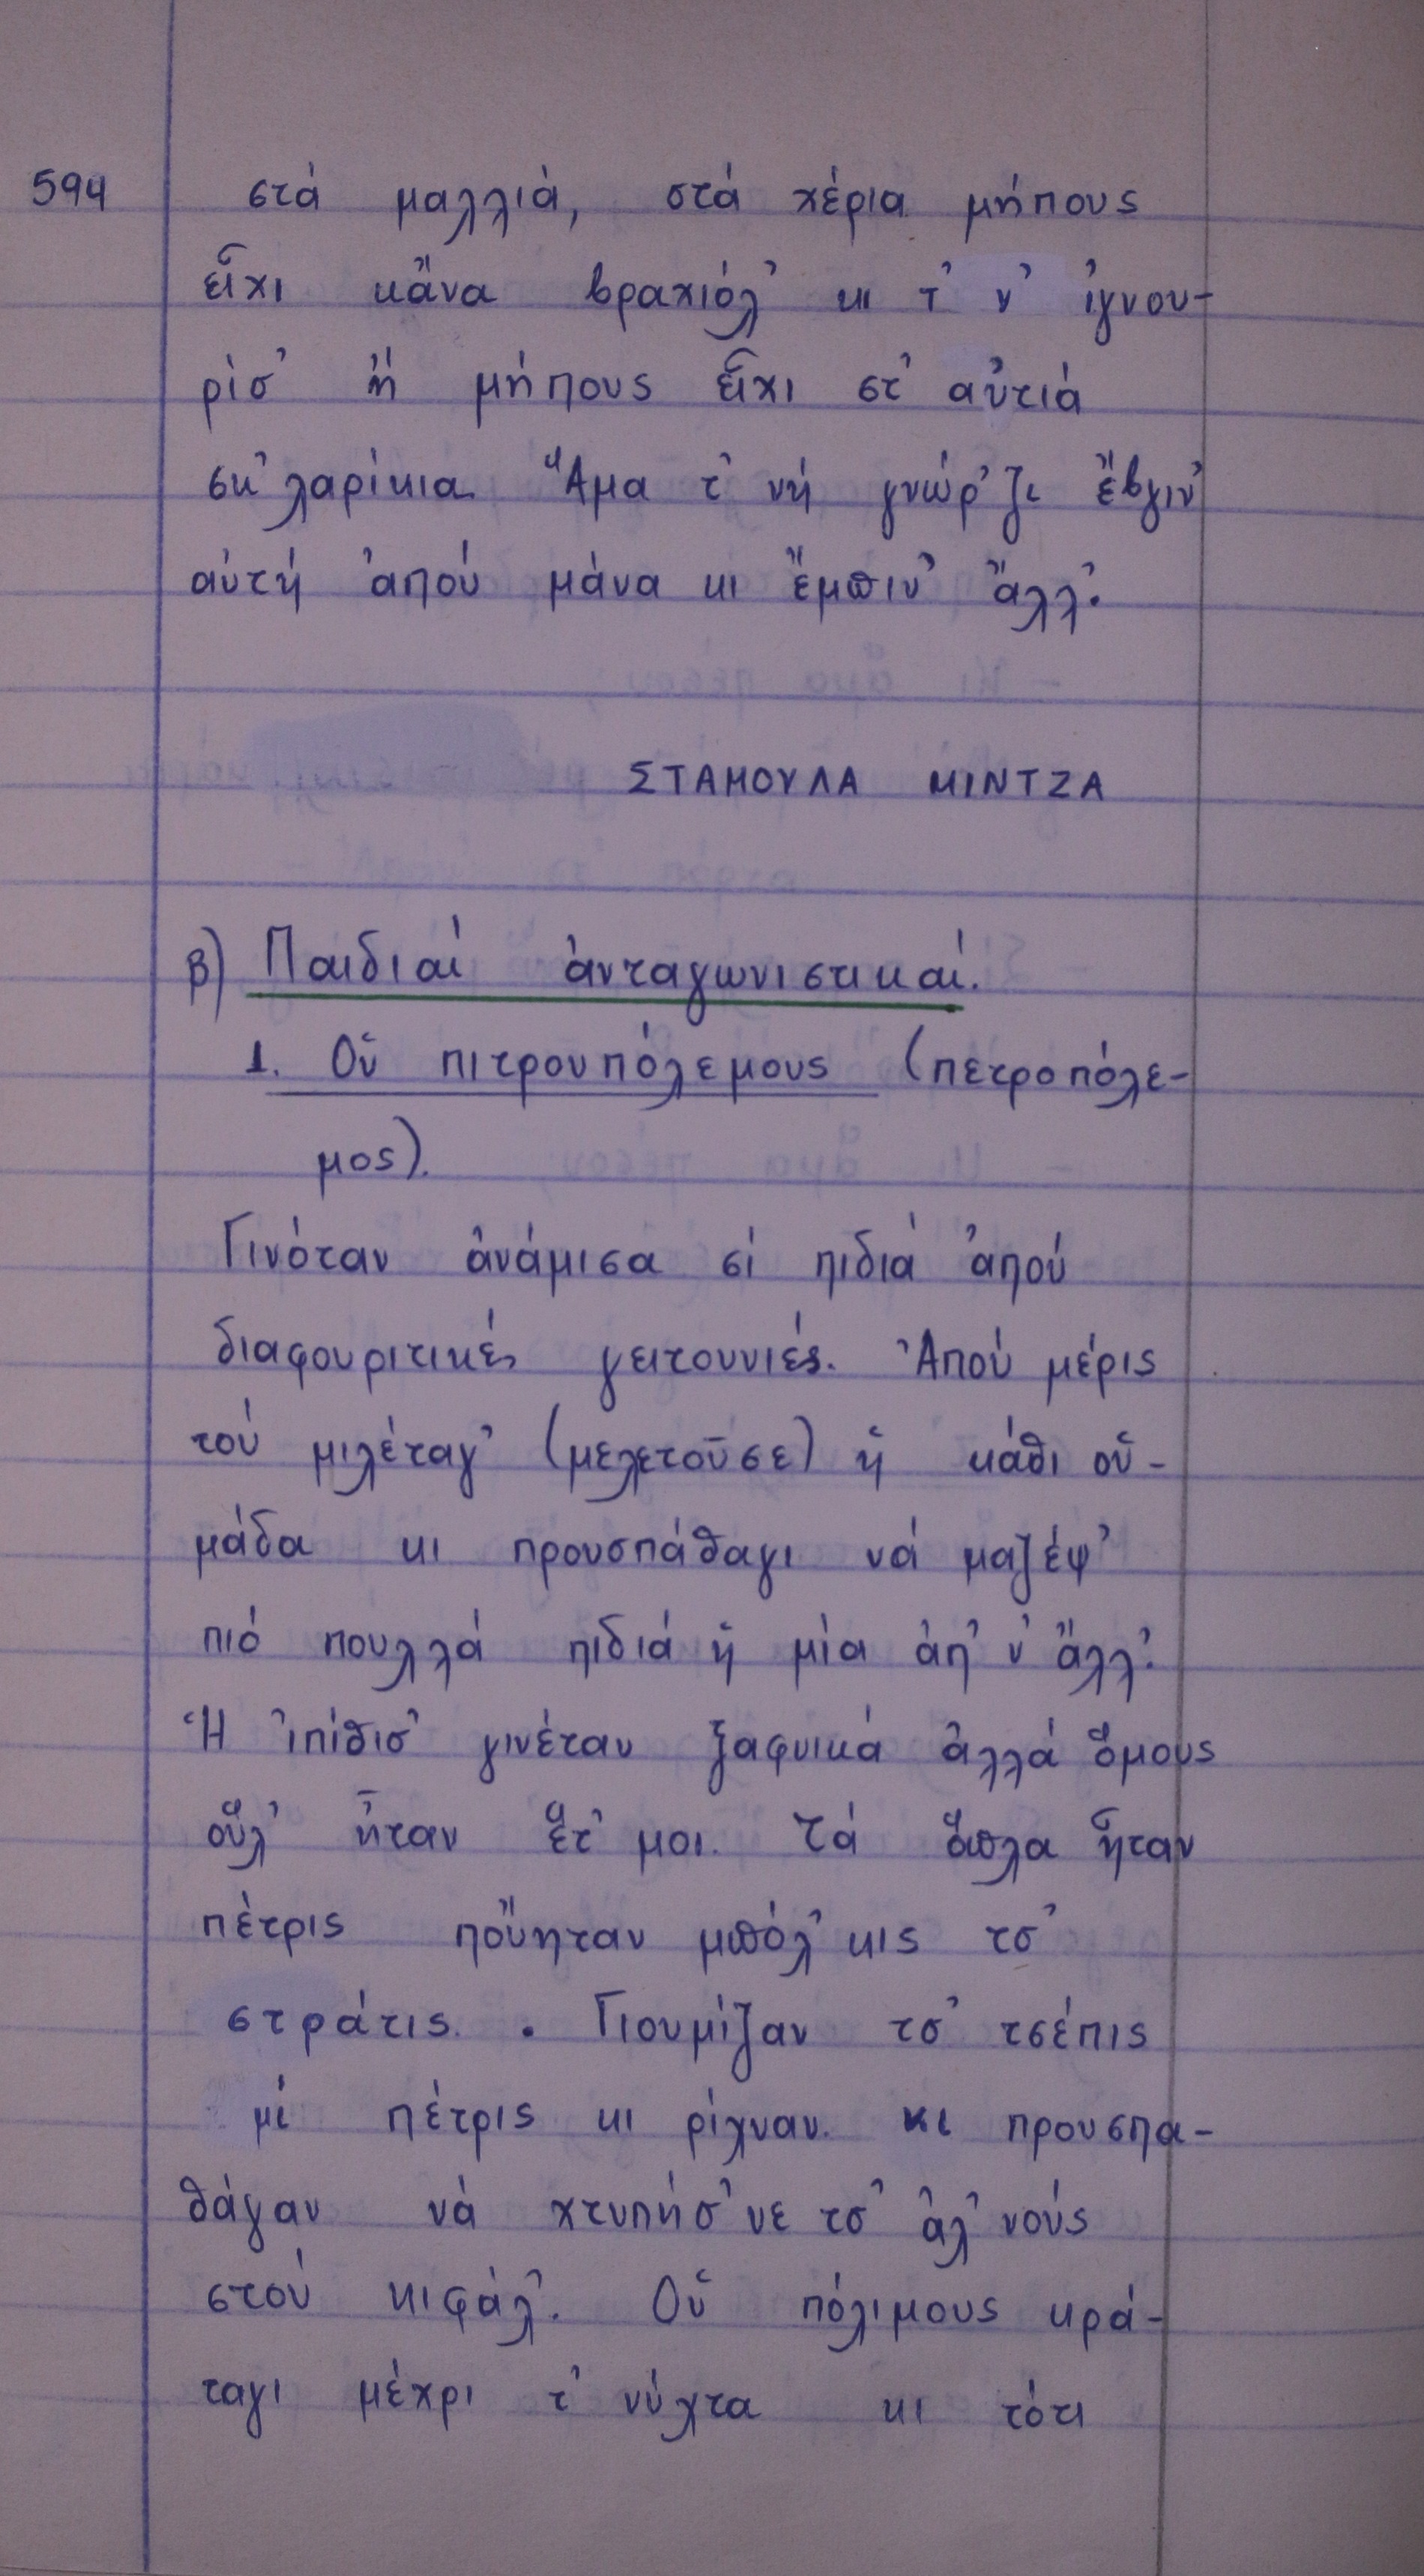 594
στά μαλλιά, στά χέρια μήπους
εἶχι κἄνα βραχιόλ' κι τ' ν' ἰγνου-
ρίσ' ἤ μήπους εἶχι στ' αὐτιά
σκ'λαρίκια. Ἅμα τ' νή γνώρ'ζι ἔβγιν'
αὐτή ἀπού μάνα κι ἔμπιν' ἄλλ'.
ΣΤΑΜΟΥΛΑ ΜΙΝΤΖΑ
β) Παιδιαί ἀνταγωνιστικαί.
1. Οὑ πιτρουπόλεμους (πετροπόλε-
μος).
Γινόταν ἀνάμισα σί πιδιά ἀπού
διαφουριτικές γειτουνιές. Ἀπού μέρις
τού μιλέταγ' (μελετοῦσε) ἡ κάθι οὑ-
μάδα κι προυσπάθαγι νά μαζέψ'
πιό πουλλά πιδιά ἡ μία ἀπ' ν' ἄλλ'.
Ἡ ἰπίθισ' γινέταν ξαφνικά ἀλλά ὅμους
οὗλ' ἦταν ἕτ'μοι. Τά ὅπλα ἦταν
πέτρις πὄυηταν μπόλ'κις τσ'
στράτις. . Γιουμίζαν τσ' τσέπις
μί πέτρις κι ρίχναν. κι προυσπα-
θάγαν νά χτυπήσ'νε τσ' ἀλ'νούς
στού κιφάλ'. Οὑ πόλιμους κρά-
ταγι μέχρι τ' νύχτα κι τότι